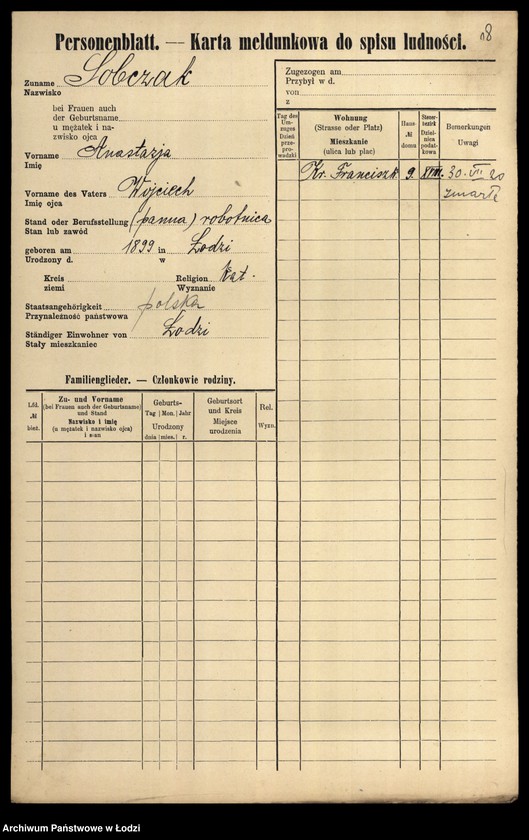 18
Personenblatt. — Karta meldunkowa do spisu ludności.
Zuname Sobczak
Nazwisko
bei Frauen auch
der Geburtsname
u mężatek i na-
zwisko ojca
Vorname Anastazja
Imię
Vorname des Vaters Wojciech
Imię ojca
Stand oder Berufsstellung (panna) robotnica
Stan lub zawód
geboren am 1899 in Łodzi
Urodzony d. w
Kreis Religion Kat.
ziemi Wyznanie
Staatsangehörigkeit polska
Przynależność państwowa
Ständiger Einwohner von Łodzi
Stały mieszkaniec
Zugezogen am
Przybył w d.
von
z
Tag des
Um-
zuges
Dzień
prze-
prowadzki
Wohnung
(Strasse oder Platz)
Mieszkanie
(ulica lub plac)
Haus-
№
domu
Steuer-
bezirk
Dziel-
nica
podat-
kowa
Bemerkungen
Uwagi
Kr. Franciszk. 9. XVIII. 30. VII 20
zmarła
Familienglieder. — Członkowie rodziny.
Lfd.
№
bież.
Zu- und Vorname
(bei Frauen auch der Geburtsname)
und Stand
Nazwisko i imię
(u mężatek i nazwisko ojca)
i stan
Geburts-
Tag Mon. Jahr
Urodzony
dnia mies. r.
Geburtsort
und Kreis
Miejsce
urodzenia
Rel.
Wyzn.
Archiwum Państwowe w Łodzi